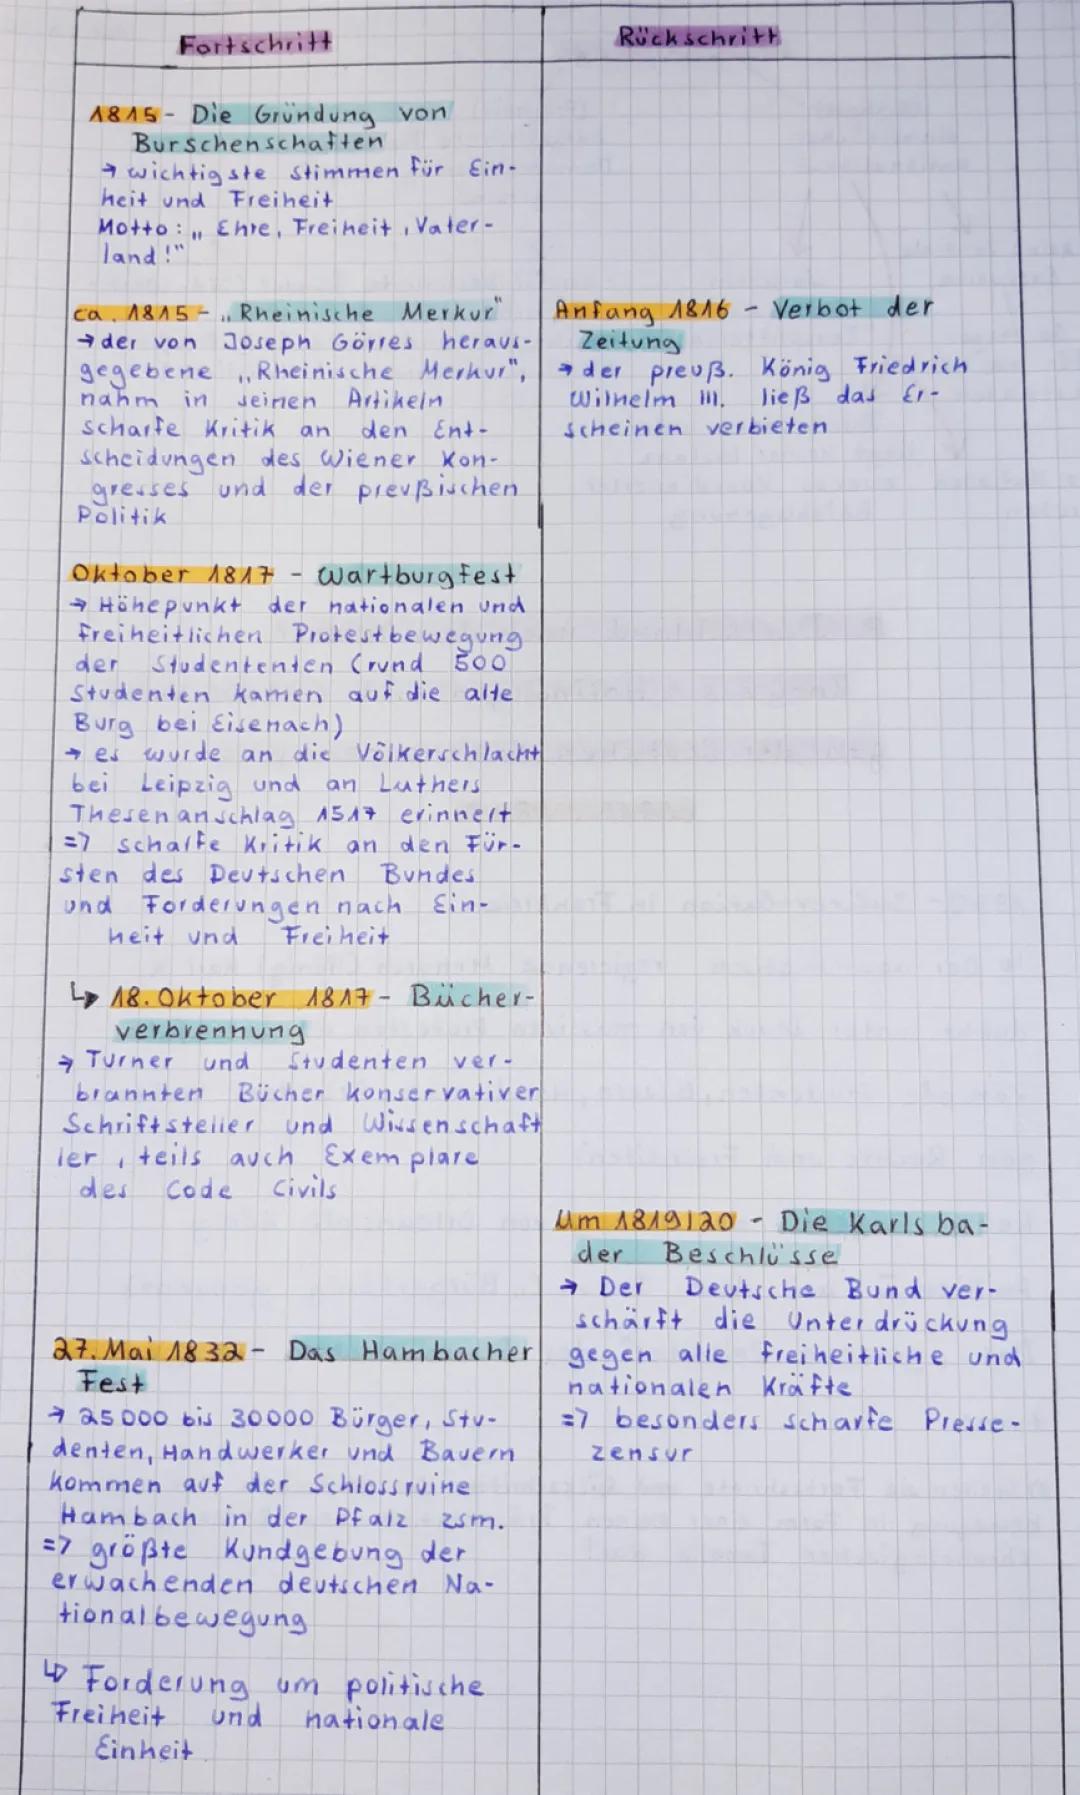 Fortschritt
Rückschritt
1815 - Die Gründung von
Burschenschaften
→ wichtigste Stimmen für Ein-
heit und Freiheit
Motto: „Ehre, Freiheit, Vater-
land!"
ca. 1815 - „Rheinische Merkur"
→ der von Joseph Görres heraus-
gegebene „Rheinische Merkur",
nahm in seinen Artikeln
scharfe Kritik an den Ent-
scheidungen des Wiener Kon-
gresses und der preußischen
Politik
Anfang 1816 - Verbot der
Zeitung
→ der preuß. König Friedrich
Wilhelm III. ließ das Er-
scheinen verbieten
Oktober 1817 - Wartburgfest
→ Höhepunkt der nationalen und
freiheitlichen Protestbewegung
der Studententen (rund 500
Studenten kamen auf die alte
Burg bei Eisenach)
→ es wurde an die Völkerschlacht
bei Leipzig und an Luthers
Thesenanschlag 1517 erinnert
=> scharfe Kritik an den Für-
sten des Deutschen Bundes
und Forderungen nach Ein-
heit und Freiheit
↳ 18. Oktober 1817 - Bücher-
verbrennung
→ Turner und Studenten ver-
brannten Bücher konservativer
Schriftsteller und Wissenschaft
ler, teils auch Exemplare
des Code Civils
Um 1819/20 - Die Karlsba-
der Beschlüsse
→ Der Deutsche Bund ver-
schärft die Unterdrückung
gegen alle freiheitliche und
nationalen Kräfte
=> besonders scharfe Presse-
zensur
27. Mai 1832 - Das Hambacher
Fest
→ 25000 bis 30000 Bürger, Stu-
denten, Handwerker und Bauern
kommen auf der Schlossruine
Hambach in der Pfalz zsm.
=> größte Kundgebung der
erwachenden deutschen Na-
tionalbewegung
↳ Forderung um politische
Freiheit und nationale
Einheit